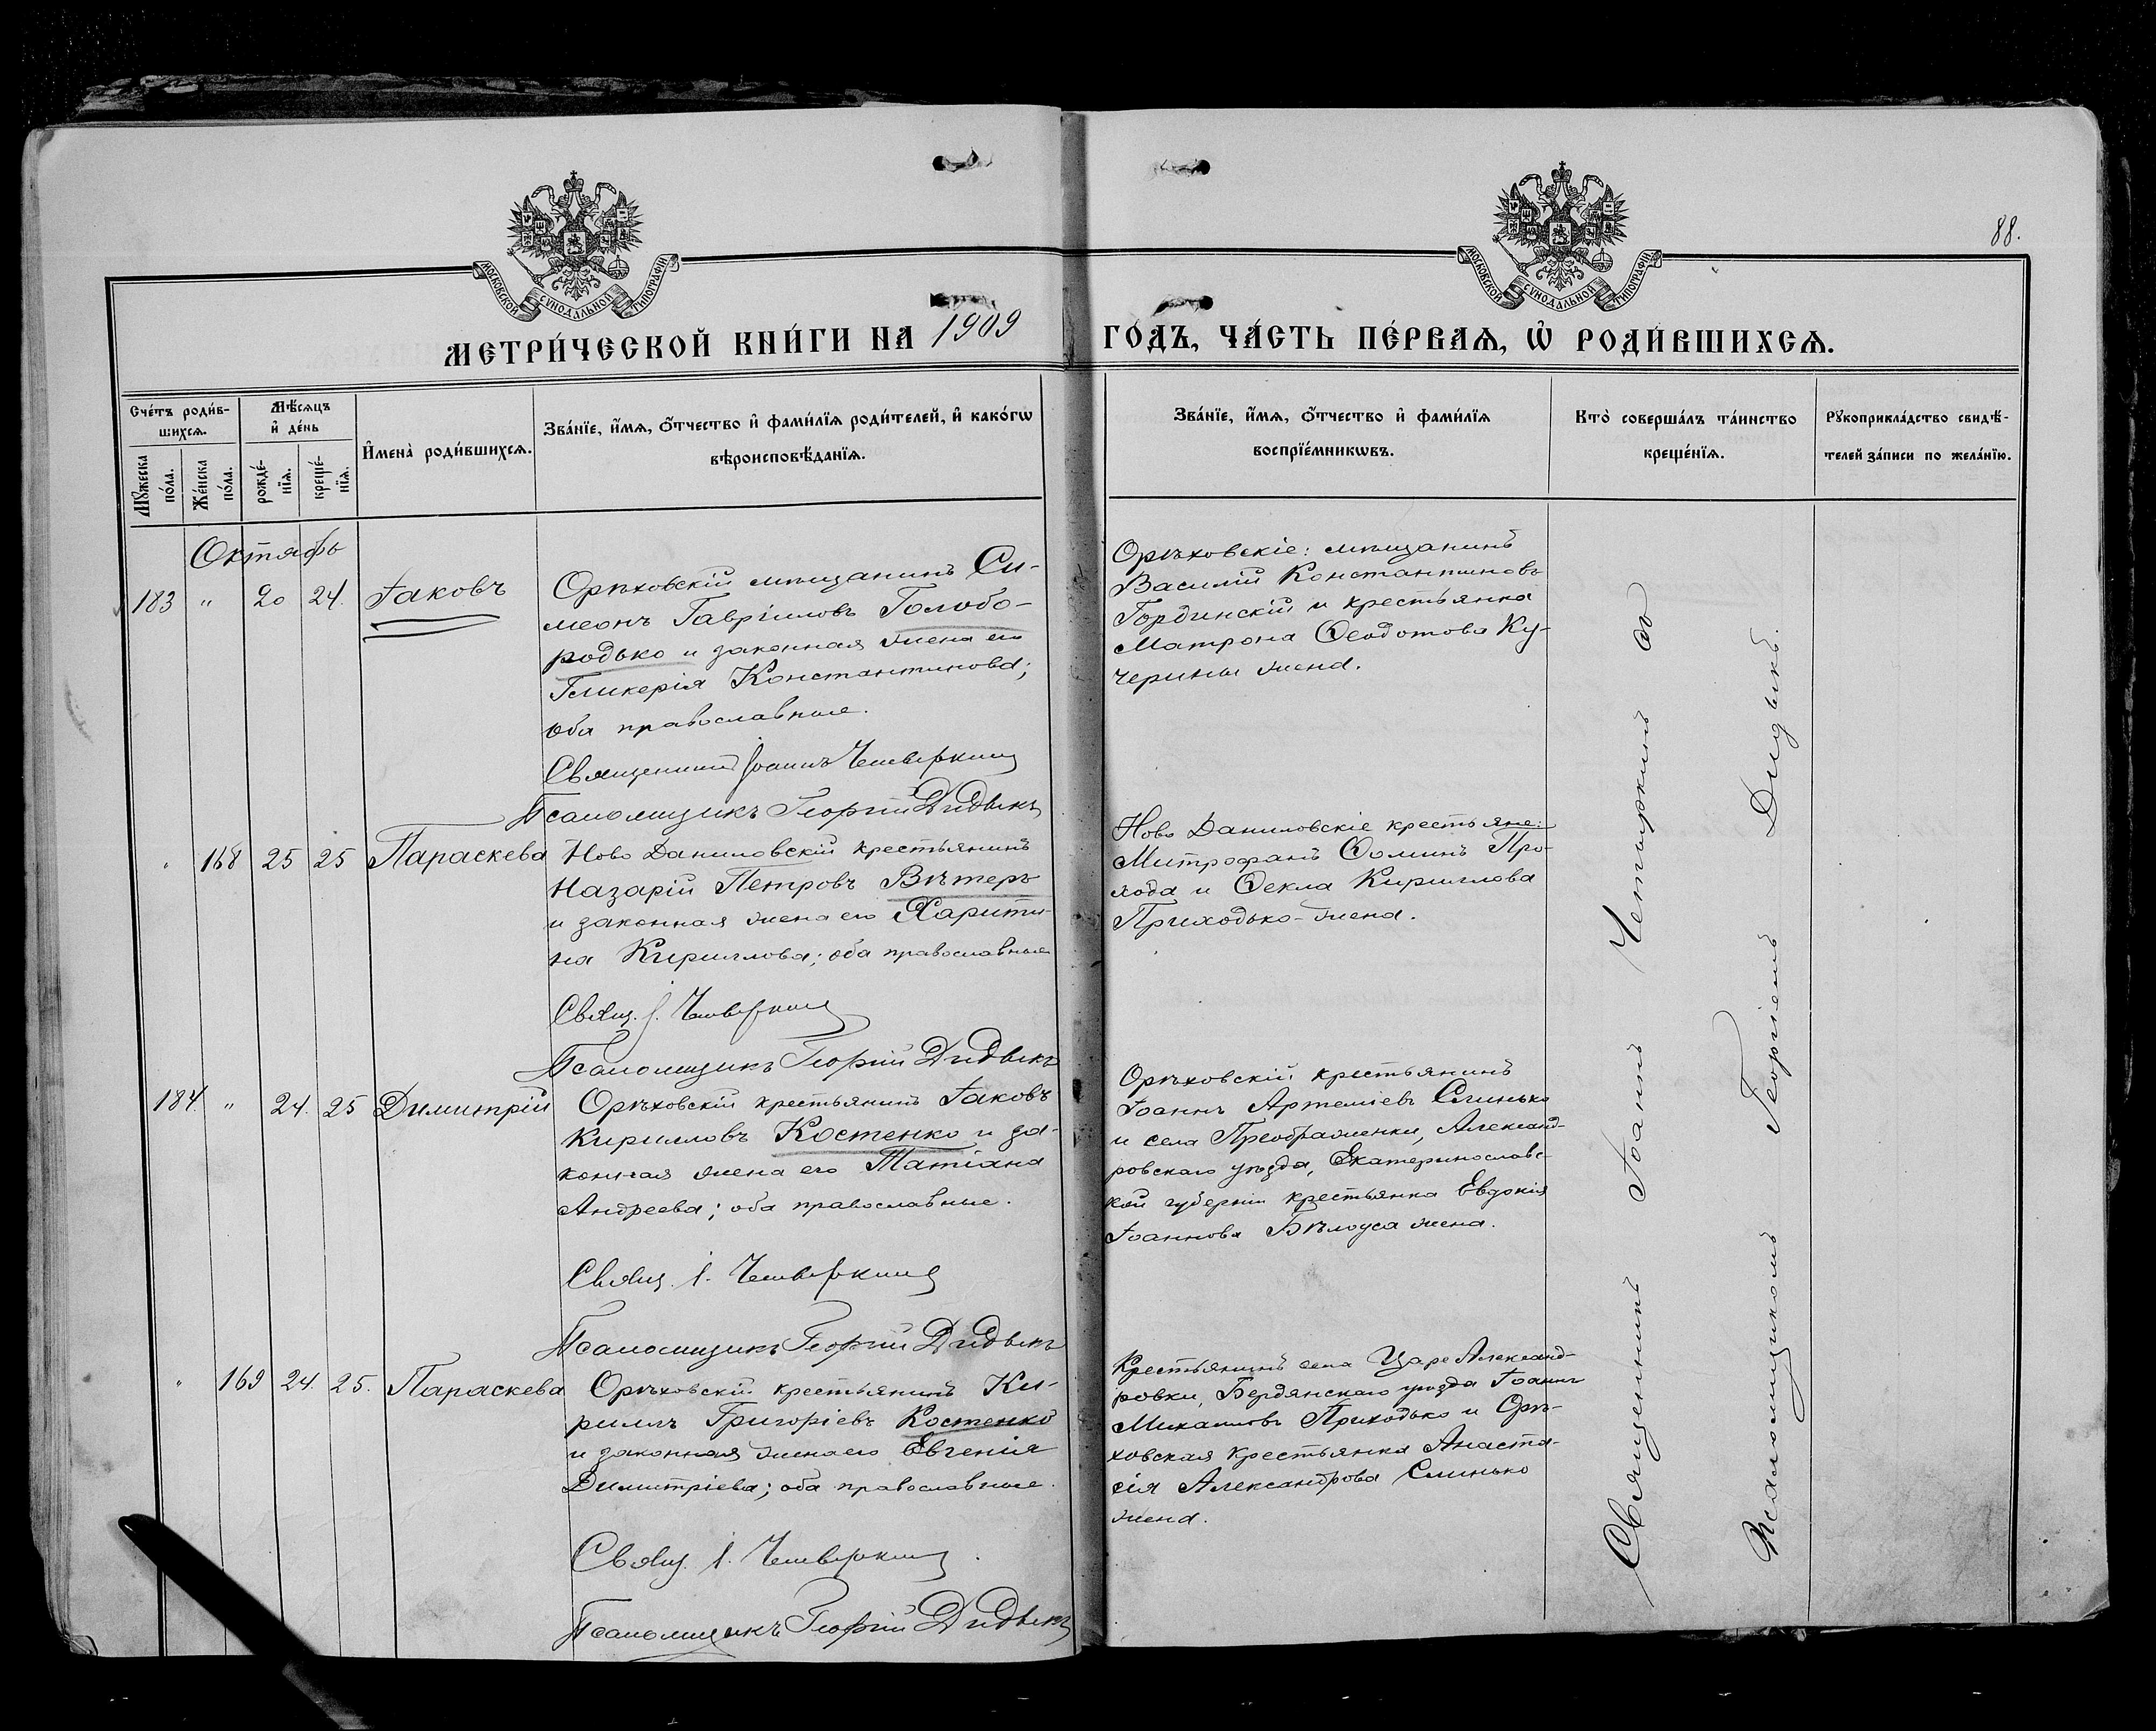 88.
МОСКОВСКОЙ СѴНОДАЛЬНОЙ ТИПОГРАФІИ
МОСКОВСКОЙ СѴНОДАЛЬНОЙ ТИПОГРАФІИ
МЕТРИ́ЧЕСКОЙ КНИ́ГИ НА 1909 ГО́ДЪ, ЧА́СТЬ ПЕ́РВАѦ, Ѡ҆ РОДИ́ВШИХСѦ.
Сче́тъ роди́в-
шихсѧ.
Мꙋжеска по́ла.
Же́нска по́ла.
Мѣ́сѧцъ и҆ де́нь
рожде́-
нїѧ.
креще́-
нїѧ.
И҆мена̀ роди́вшихсѧ.
Зва́нїе, и҆́мѧ, ѻ҆́тчество и҆ фами́лїѧ роди́телей, и҆ како́гѡ
вѣроисповѣ́данїѧ.
Зва́нїе, и҆́мѧ, ѻ҆́тчество и҆ фами́лїѧ
воспрїе́мникѡвъ.
Кто̀ соверша́лъ та́инство
креще́нїѧ.
Рꙋкоприкла́дство свидѣ́-
телей за́писи по жела́нїю.
Октябрь
183 " 20 24. Іаковъ
Орѣховскій мѣщанинъ Си-
меонъ Гавріиловъ Голобо-
родько и законная жена его
Гликерія Константинова;
оба православные.
Священникъ Іоаннъ Четверкинъ
Псаломщикъ Георгій Дидыкъ
Орѣховскіе: мѣщанинъ
Василій Константиновъ
Гординскій и крестьянка
Матрона Ѳеодотова Ку-
черины жена.
" 168 25 25 Параскева
Ново Даниловскій крестьянинъ
Назарій Петровъ Вѣтеръ
и законная жена его Харити-
на Кириллова; оба православные
Свящ. І. Четверкинъ
Псаломщикъ Георгій Дидыкъ
Ново Даниловскіе крестьяне:
Митрофанъ Ѳоминъ Про-
хода и Ѳекла Кириллова
Приходько-жена.
184. " 24. 25 Димитрій
Орѣховскій крестьянинъ Іаковъ
Кирилловъ Костенко и за-
конная жена его Татіана
Андреева; оба православные.
Свящ. І. Четверкинъ
Псаломщикъ Георгій Дидыкъ
Орѣховскій крестьянинъ
Іоаннъ Артеміевъ Слинько
и села Преображенки, Александ-
ровскаго уѣзда, Екатеринославс-
кой губерніи крестьянка Евдокія
Іоаннова Бѣлоуса жена.
" 169 24. 25. Параскева
Орѣховскій крестьянинъ Ки-
риллъ Григоріевъ Костенко
и законная жена его Евгенія
Димитріева; оба православные.
Свящ. І. Четверкинъ.
Псаломщикъ Георгій Дидыкъ
Крестьянинъ села ЦареАлександ-
ровки, Бердянскаго уѣзда Іоаннъ
Михаиловъ Приходько и Орѣ-
ховская крестьянка Анаста-
сія Александрова Слинько
жена.
Священникъ Іоаннъ Четыркинъ со
Псаломщикомъ Георгіемъ Дидыкъ.